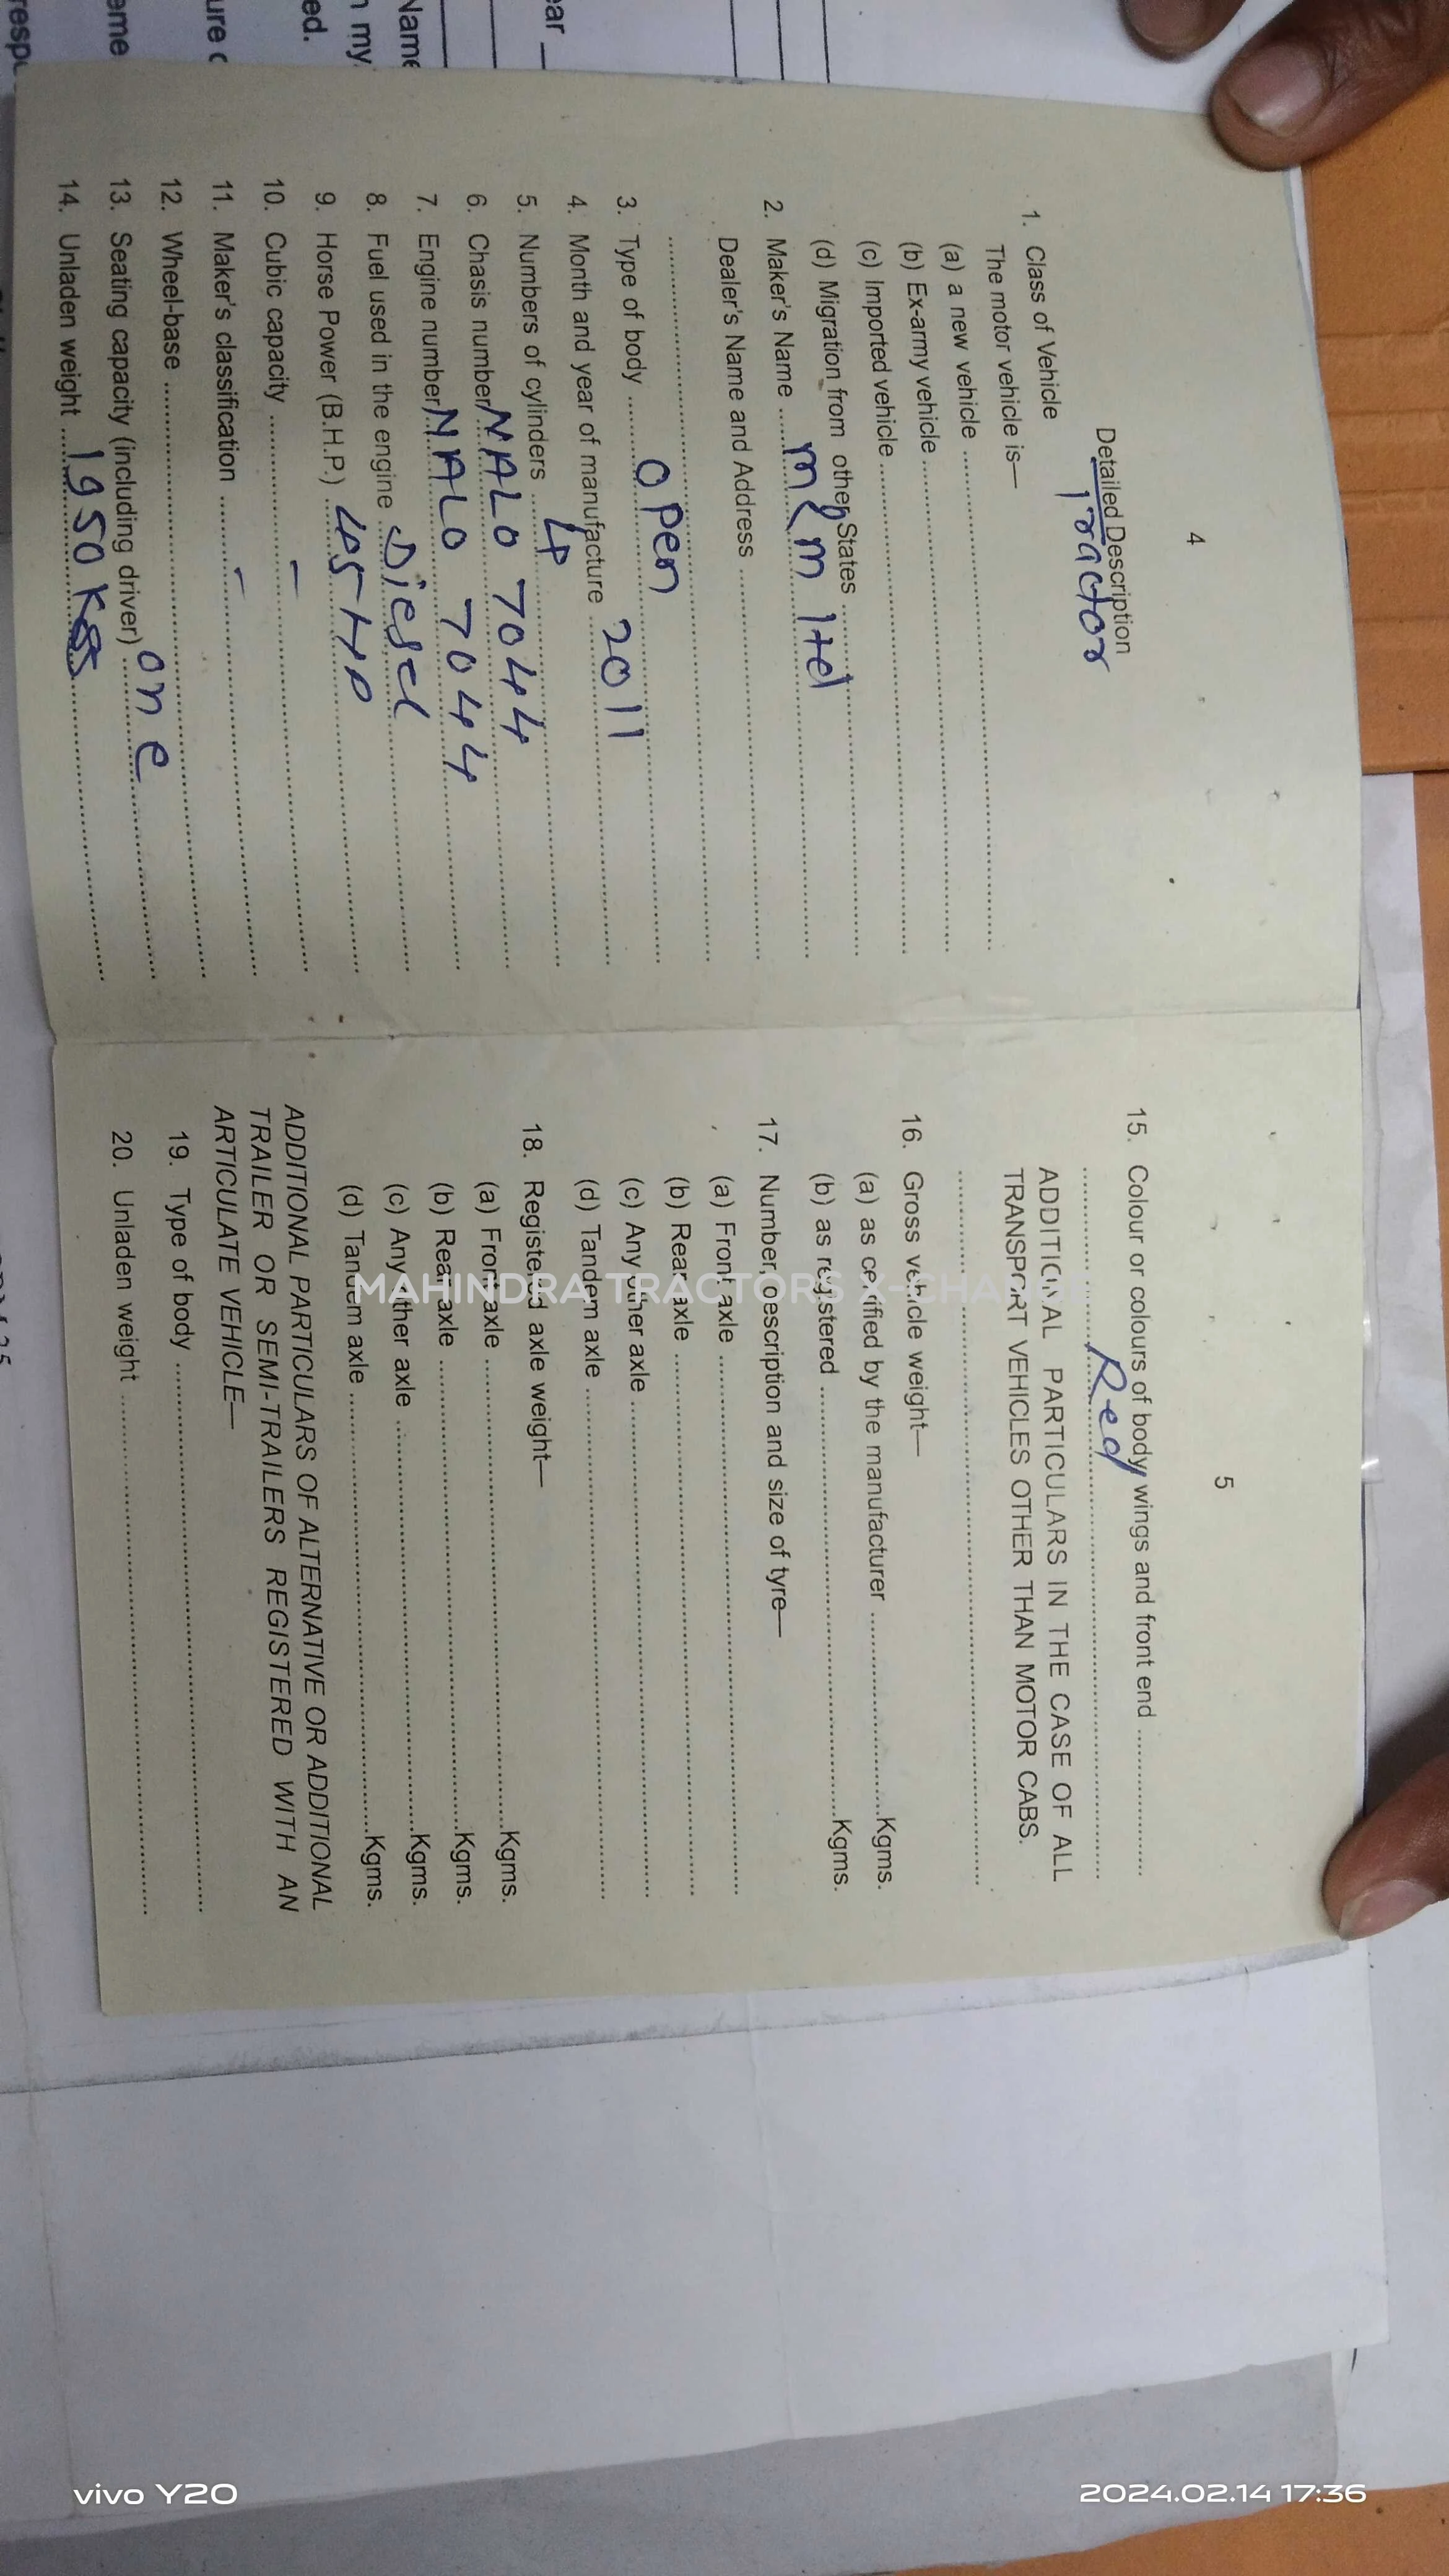 4
Detailed Description
1. Class of Vehicle Tractor
The motor vehicle is—
(a) a new vehicle ........................
(b) Ex-army vehicle ........................
(c) Imported vehicle ........................
(d) Migration from other States ........................
2. Maker's Name ...... m&m ltd ......
Dealer's Name and Address ........................
........................
3. Type of body ...... open ......
4. Month and year of manufacture ...... 2011 ......
5. Numbers of cylinders ...... 4 ......
6. Chasis number NALO 7044 ......
7. Engine number NALO 7044 ......
8. Fuel used in the engine ... Diesel ......
9. Horse Power (B.H.P.) ... 45 HP ......
10. Cubic capacity ...... – ......
11. Maker's classification ...... – ......
12. Wheel-base ........................
13. Seating capacity (including driver) ... one ......
14. Unladen weight ...... 1950 KGS ......
5
15. Colour or colours of body wings and front end ............
............ Red ............
ADDITIONAL PARTICULARS IN THE CASE OF ALL
TRANSPORT VEHICLES OTHER THAN MOTOR CABS.
........................
16. Gross vehicle weight—
(a) as certified by the manufacturer ............Kgms.
(b) as registered ............Kgms.
17. Number, description and size of tyre—
(a) Front axle ........................
(b) Rear axle ........................
(c) Any other axle ........................
(d) Tandem axle ........................
18. Registered axle weight—
(a) Front axle ............Kgms.
(b) Rear axle ............Kgms.
(c) Any other axle ............Kgms.
(d) Tandem axle ............Kgms.
ADDITIONAL PARTICULARS OF ALTERNATIVE OR ADDITIONAL
TRAILER OR SEMI-TRAILERS REGISTERED WITH AN
ARTICULATE VEHICLE—
19. Type of body ........................
20. Unladen weight ........................
MAHINDRA TRACTORS X-CHANGE
vivo Y20
2024.02.14 17:36